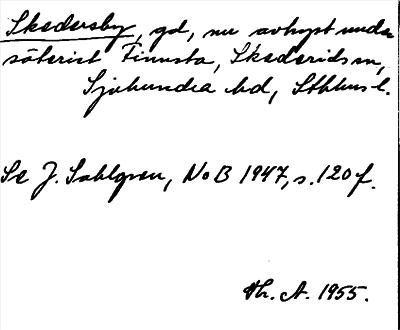 Skedersby, gd, nu avhyst under
säteriet Finnsta, Skederids sn,
Sjuhundra hd, Sthlms l.
Se J. Sahlgren, NoB 1947, s. 120 f.
Thr. A. 1955.